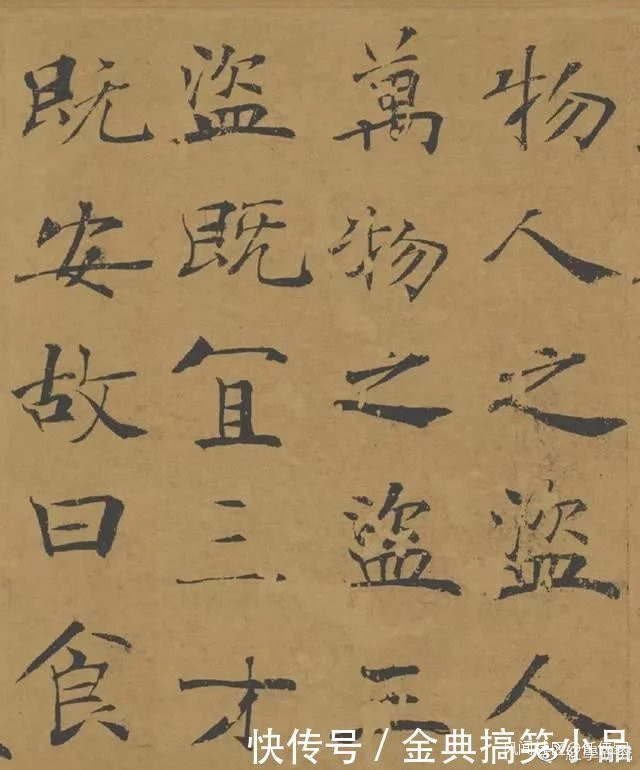 物人之盜人
萬物之盜三
盜既宜三才
既安故曰食
快传号 / 金典搞笑小品